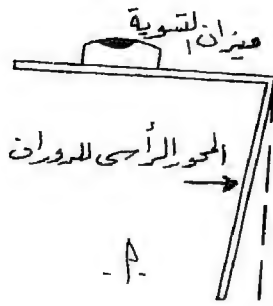 ميزان التسوية
المحور الرأسى للدوران
-P-